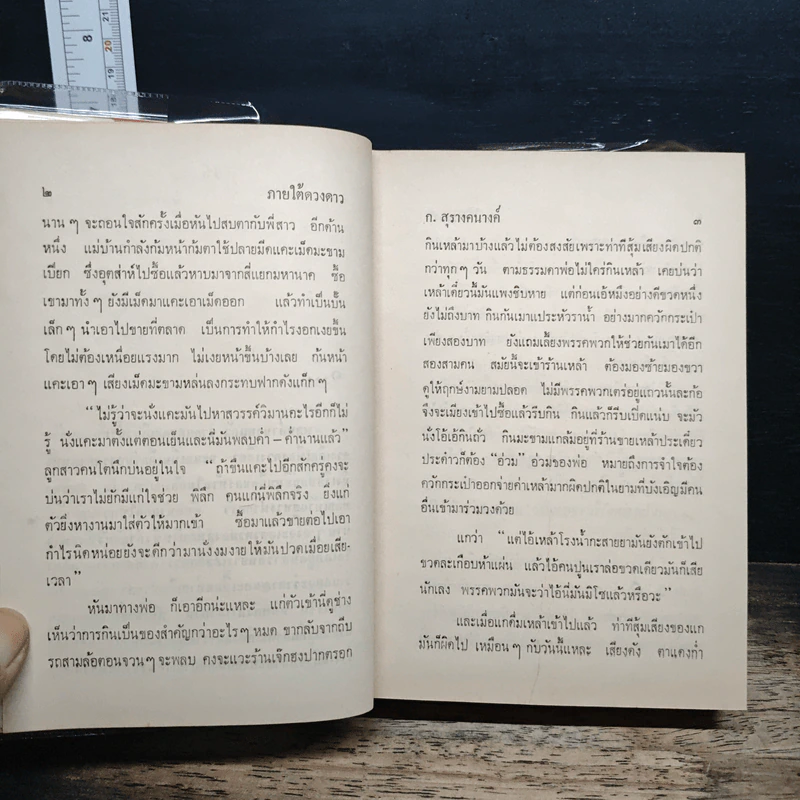 8
21
20
19
18
๒ ภายใต้ดวงดาว
นาน ๆ จะถอนใจสักครั้งเมื่อหันไปสบตากับพี่สาว อีกด้าน
หนึ่ง แม่บ้านกำลังก้มหน้าก้มตาใช้ปลายมีดแคะเม็ดมะขาม
เปียก ซึ่งอุตส่าห์ไปซื้อแล้วหาบมาจากสี่แยกมหานาค ซื้อ
เขามาทั้ง ๆ ยังมีเม็ดมาแคะเอาเม็ดออก แล้วทำเป็นปั้น
เล็ก ๆ นำเอาไปขายที่ตลาด เป็นการทำให้กำไรงอกเงยขึ้น
โดยไม่ต้องเหนื่อยแรงมาก ไม่เงยหน้าขึ้นบ้างเลย ก้นหน้า
แคะเอา ๆ เสียงเม็ดมะขามหล่นลงกระทบฟากดังแก๊ก ๆ
"ไม่รู้ว่าจะนั่งแคะมันไปหาสวรรค์วิมานอะไรอีกก็ไม่
รู้ นั่งแคะมาตั้งแต่ตอนเย็นและนี่มันพลบค่ำ – ค่ำนานแล้ว"
ลูกสาวคนโตนึกบ่นอยู่ในใจ "ถ้าขืนแคะไปอีกสักครู่คงจะ
บ่นว่าเราไม่ยักมีแก่ใจช่วย พิลึก คนแก่นี่พิลึกจริง ยิ่งแก่
ตัวยิ่งหางานมาใส่ตัวให้มากเข้า ซื้อมาแล้วขายต่อไปเอา
กำไรนิดหน่อยยังจะดีกว่ามานั่งงมงายให้มันปวดเมื่อยเสีย-
เวลา"
หันมาทางพ่อ ก็เอาอีกน่ะแหละ แก่ตัวเข้านี่ดูช่าง
เห็นว่าการกินเป็นของสำคัญกว่าอะไร ๆ หมด ขากลับจากถีบ
รถสามล้อตอนจวน ๆ จะพลบ คงจะแวะร้านเจ๊กฮงปากตรอก
ก. สุรางคนางค์ ๓
กินเหล้ามาบ้างแล้วไม่ต้องสงสัยเพราะท่าทีสุ้มเสียงผิดปกติ
กว่าทุก ๆ วัน ตามธรรมดาพ่อไม่ใคร่กินเหล้า เคยบ่นว่า
เหล้าเดี๋ยวนี้มันแพงชิบหาย แต่ก่อนเอ้หมึงอย่างดีขวดหนึ่ง
ยังไม่ถึงบาท กินกันเมาแประหัวราน้ำ อย่างมากควักกระเป๋า
เพียงสองบาท ยังแถมเลี้ยงพรรคพวกให้ช่วยกันเมาได้อีก
สองสามคน สมัยนี้จะเข้าร้านเหล้า ต้องมองซ้ายมองขวา
ดูให้ฤกษ์งามยามปลอด ไม่มีพรรคพวกเตร่อยู่แถวนั้นละก้อ
จึงจะเมียงเข้าไปซื้อแล้วรีบกิน กินแล้วก็รีบเปิดแน่บ จะมัว
นั่งโอ้เอ้กินถั่ว กินมะขามแกล้มอยู่ที่ร้านขายเหล้าประเดี๋ยว
ประด๋าวก็ต้อง "อ่วม" อ่วมของพ่อ หมายถึงการจำใจต้อง
ควักกระเป๋าออกจ่ายค่าเหล้ามากผิดปกติในยามที่บังเอิญมีคน
อื่นเข้ามาร่วมวงด้วย
แกว่า "แต่ไอ้เหล้าโรงน้ำกะสายยามันยังตักเข้าไป
ขวดละเกือบห้าแผ่น แล้วไอ้คนปูนเราล่อขวดเดียวมันก็เสีย
นักเลง พรรคพวกมันจะว่าไอ้นี่มันมิโซแล้วหรือวะ"
และเมื่อแกดื่มเหล้าเข้าไปแล้ว ท่าทีสุ้มเสียงของแก
มันก็ผิดไป เหมือน ๆ กับวันนี้แหละ เสียงดัง ตาแดงก่ำ